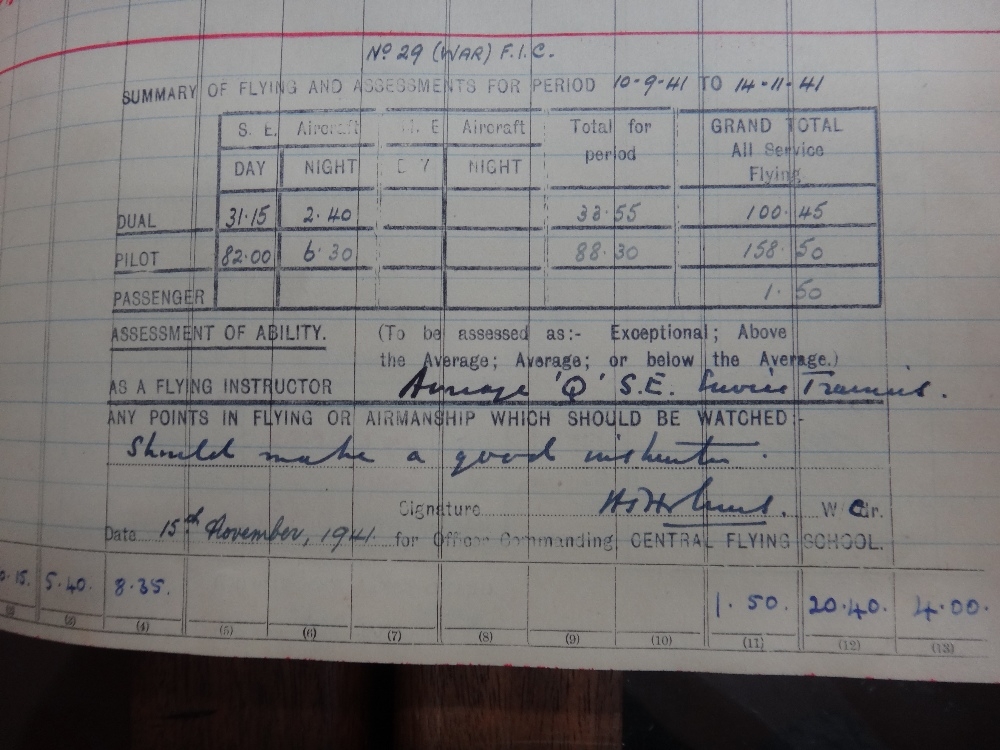 No 29 (WAR) F.I.C.
SUMMARY OF FLYING AND ASSESSMENTS FOR PERIOD 10-9-41 TO 14-11-41
S. E. Aircraft M. E Aircraft Total for period GRAND TOTAL All Service Flying
DAY NIGHT D Y NIGHT
DUAL 31.15 2.40 33.55 100.45
PILOT 82.00 6.30 88.30 158.50
PASSENGER 1.50
ASSESSMENT OF ABILITY. (To be assessed as:- Exceptional; Above
the Average; Average; or below the Average.)
AS A FLYING INSTRUCTOR Average 'Q' S.E. Service Training.
ANY POINTS IN FLYING OR AIRMANSHIP WHICH SHOULD BE WATCHED:-
Should make a good instructor.
Signature W Cdr.
Date 15th November, 1941 for Officer Commanding CENTRAL FLYING SCHOOL.
5.40. 8.35. 1.50. 20.40. 4.00.
(3) (4) (5) (6) (7) (8) (9) (10) (11) (12) (13)